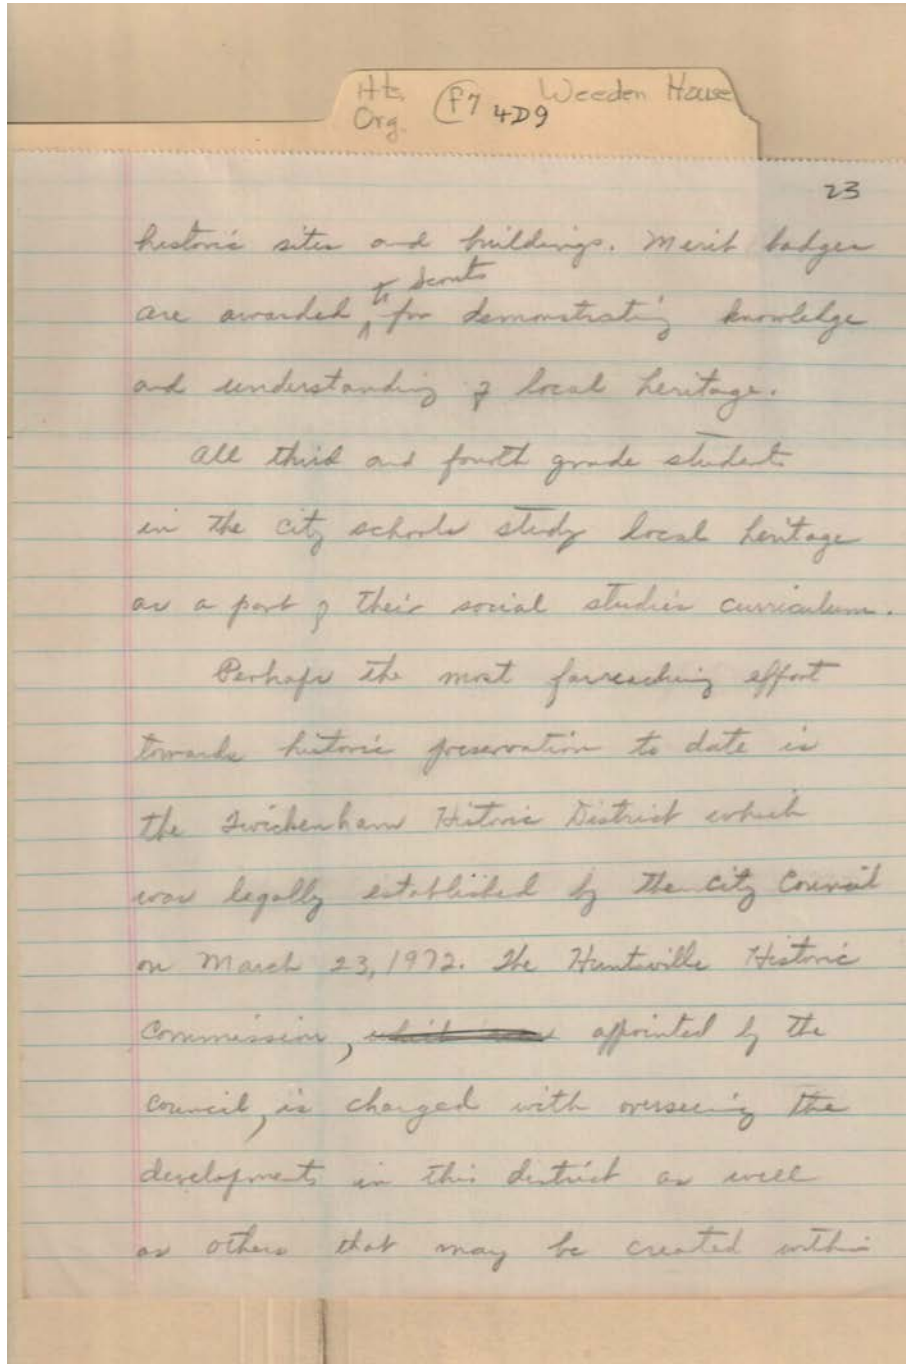 Hts. Org. F7 4D9 Weeden House
23
historic sites and buildings. Merit badges
are awarded to Scouts for demonstrating knowledge
and understanding of local heritage.
All third and fourth grade students
in the city schools study local heritage
as a part of their social studies curriculum.
Perhaps the most farreaching effort
towards historic preservation to date is
the Twickenham Historic District which
was legally established by the City Council
on March 23, 1972. The Huntsville Historic
Commission, which was appointed by the
Council, is charged with overseeing the
developments in this district as well
as others that may be created within